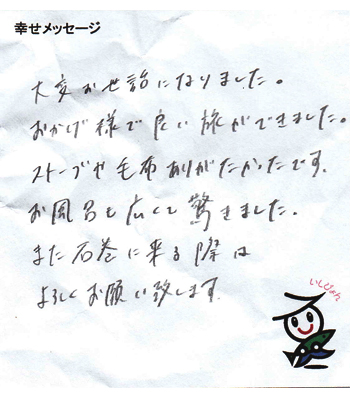 幸せメッセージ
大変お世話になりました。
おかげ様で良い旅ができました。
ストーブや毛布ありがたかったです。
お風呂も広くて驚きました。
また石巻に来る際は
よろしくお願い致します
いしぴょん